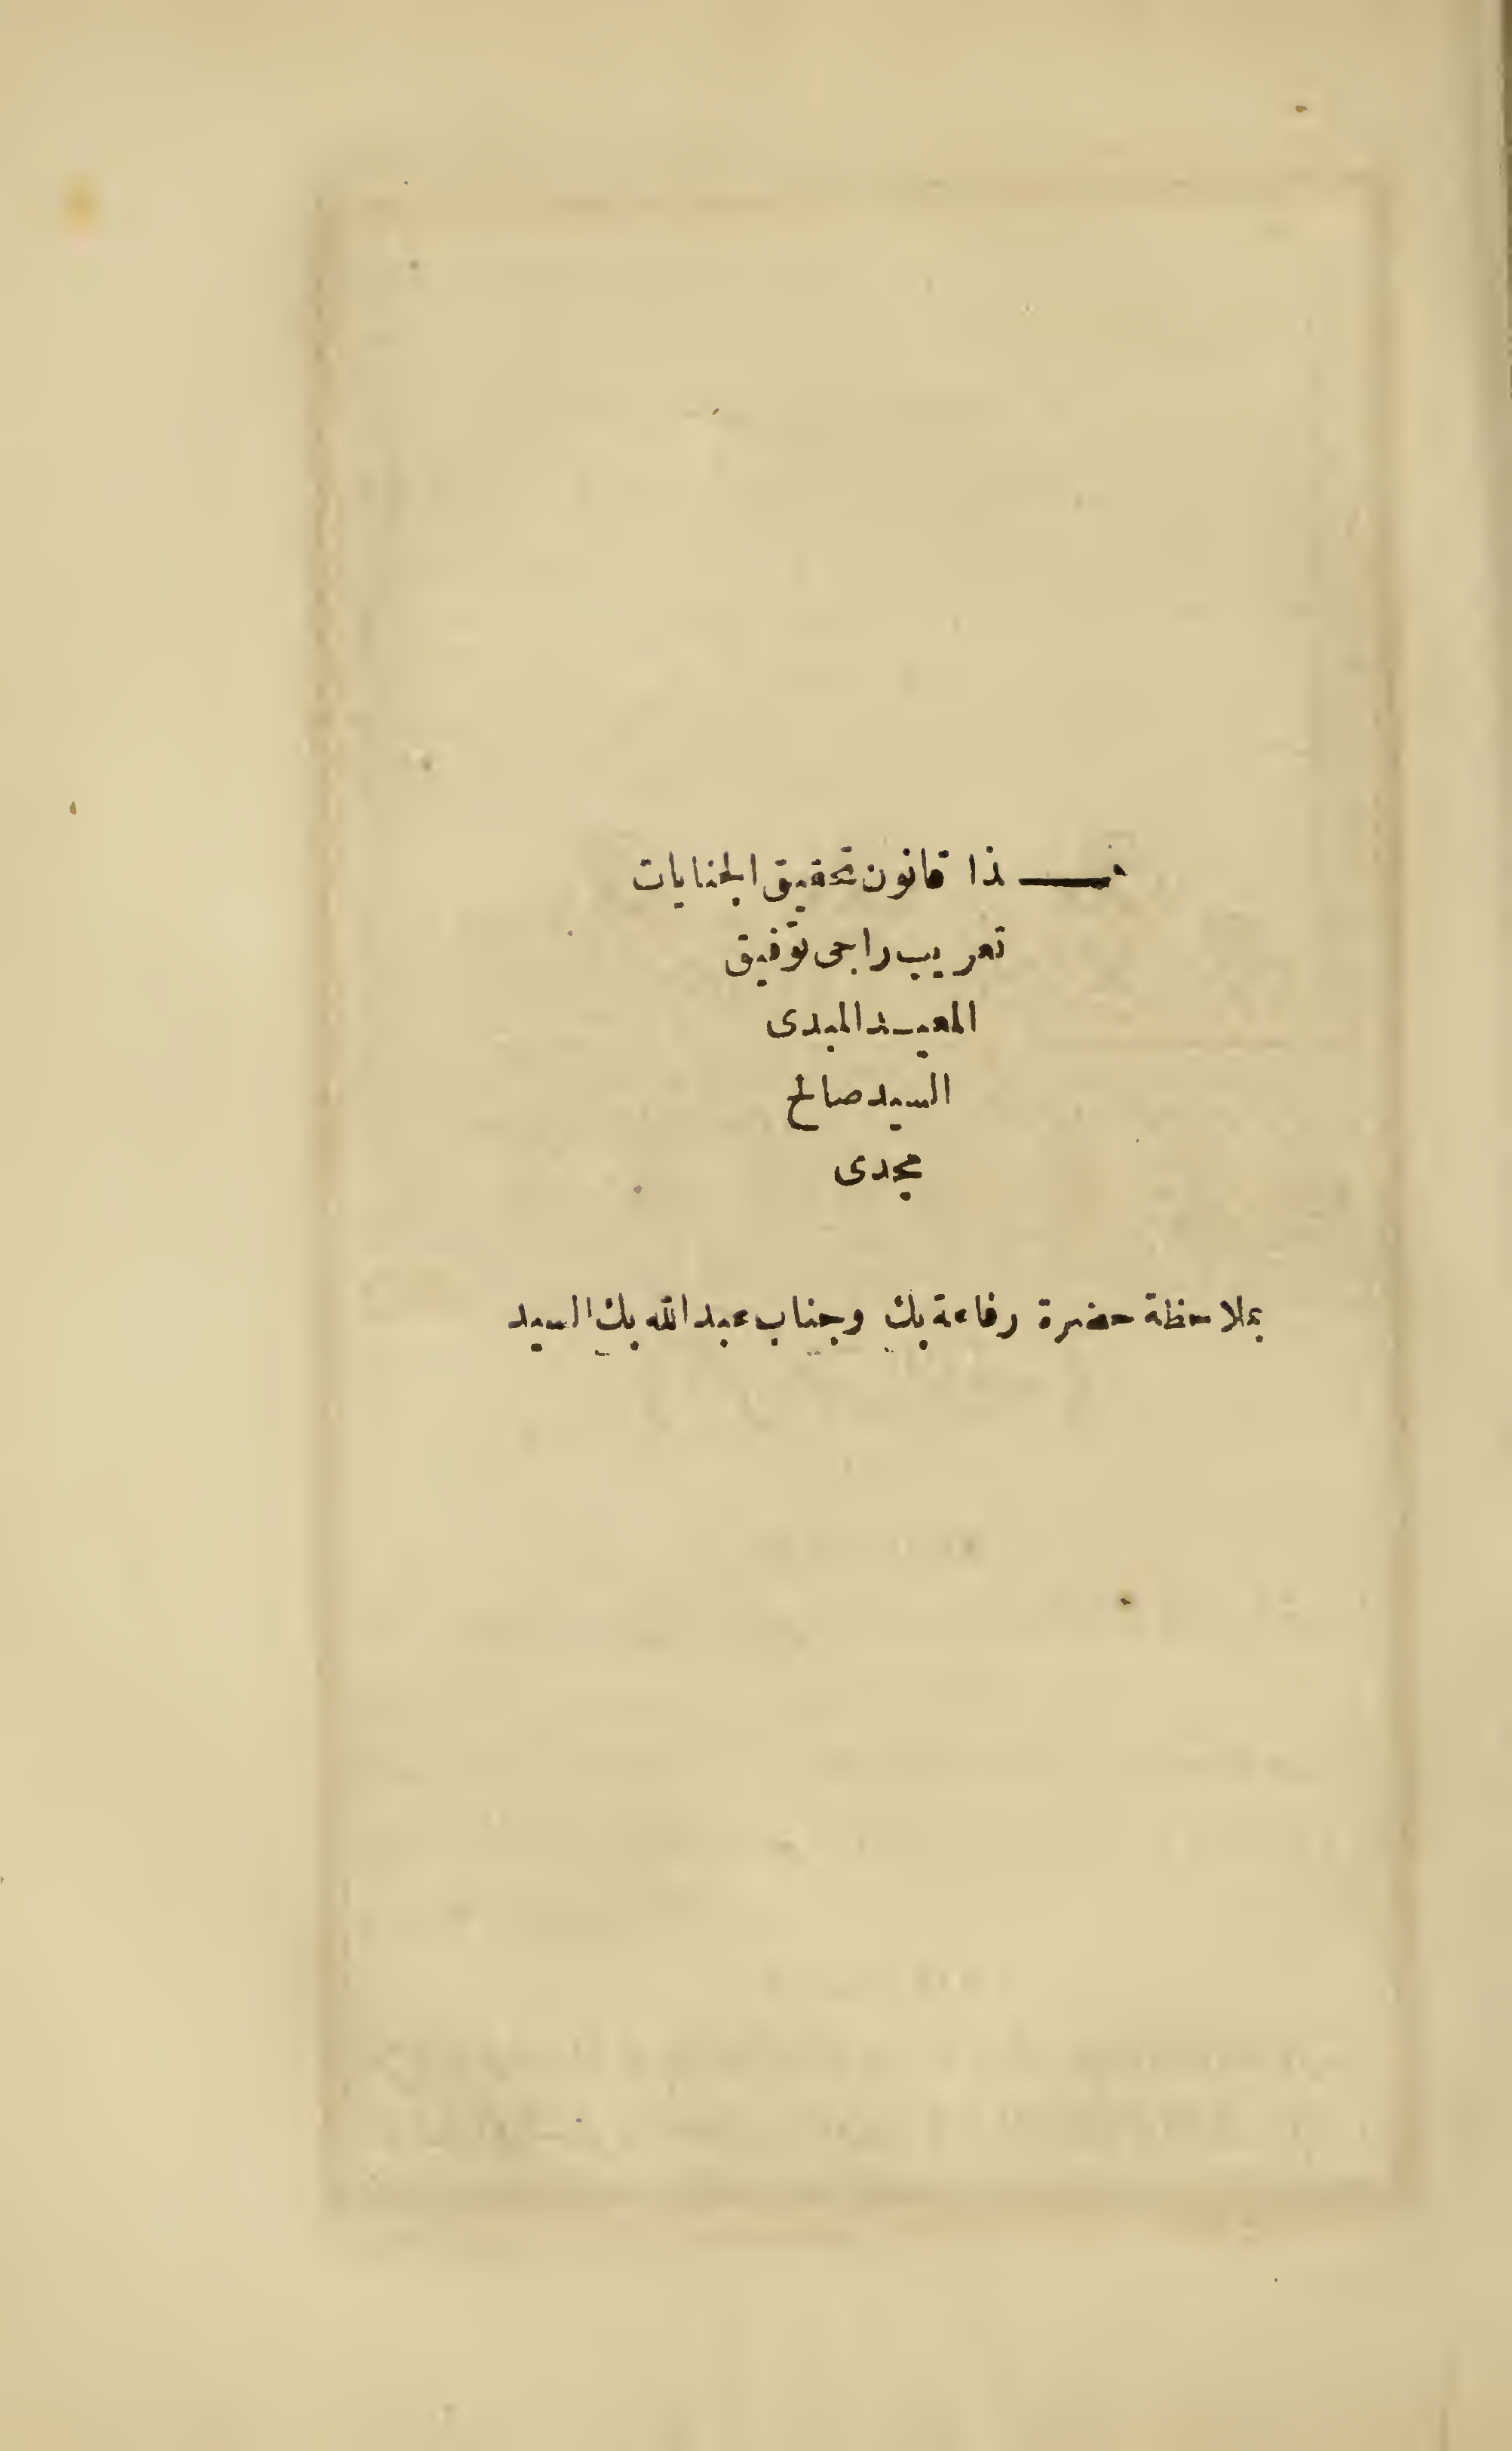 هـــــذا قانون تحقيق الجنايات
تعريب راجى توفيق
المعيـد المبدى
السيد صالح
مجدى
بملاحظة حضرة رفاعة بك وجناب عبد الله بك السيد